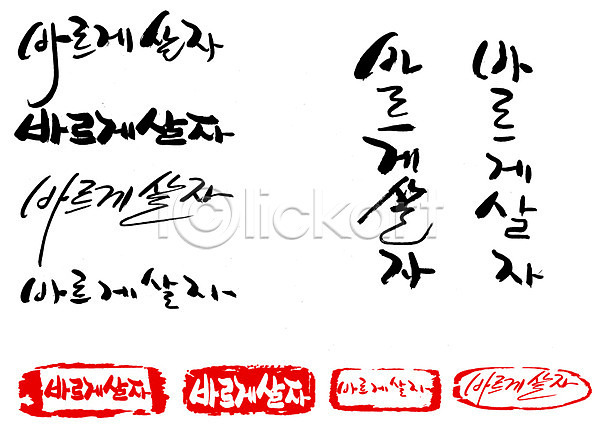 바르게살자
바르게살자
바르게살자
바르게살자
바르게살자
바르게살자
iclickart
바르게살자
바르게살자
바르게살자
바르게살자